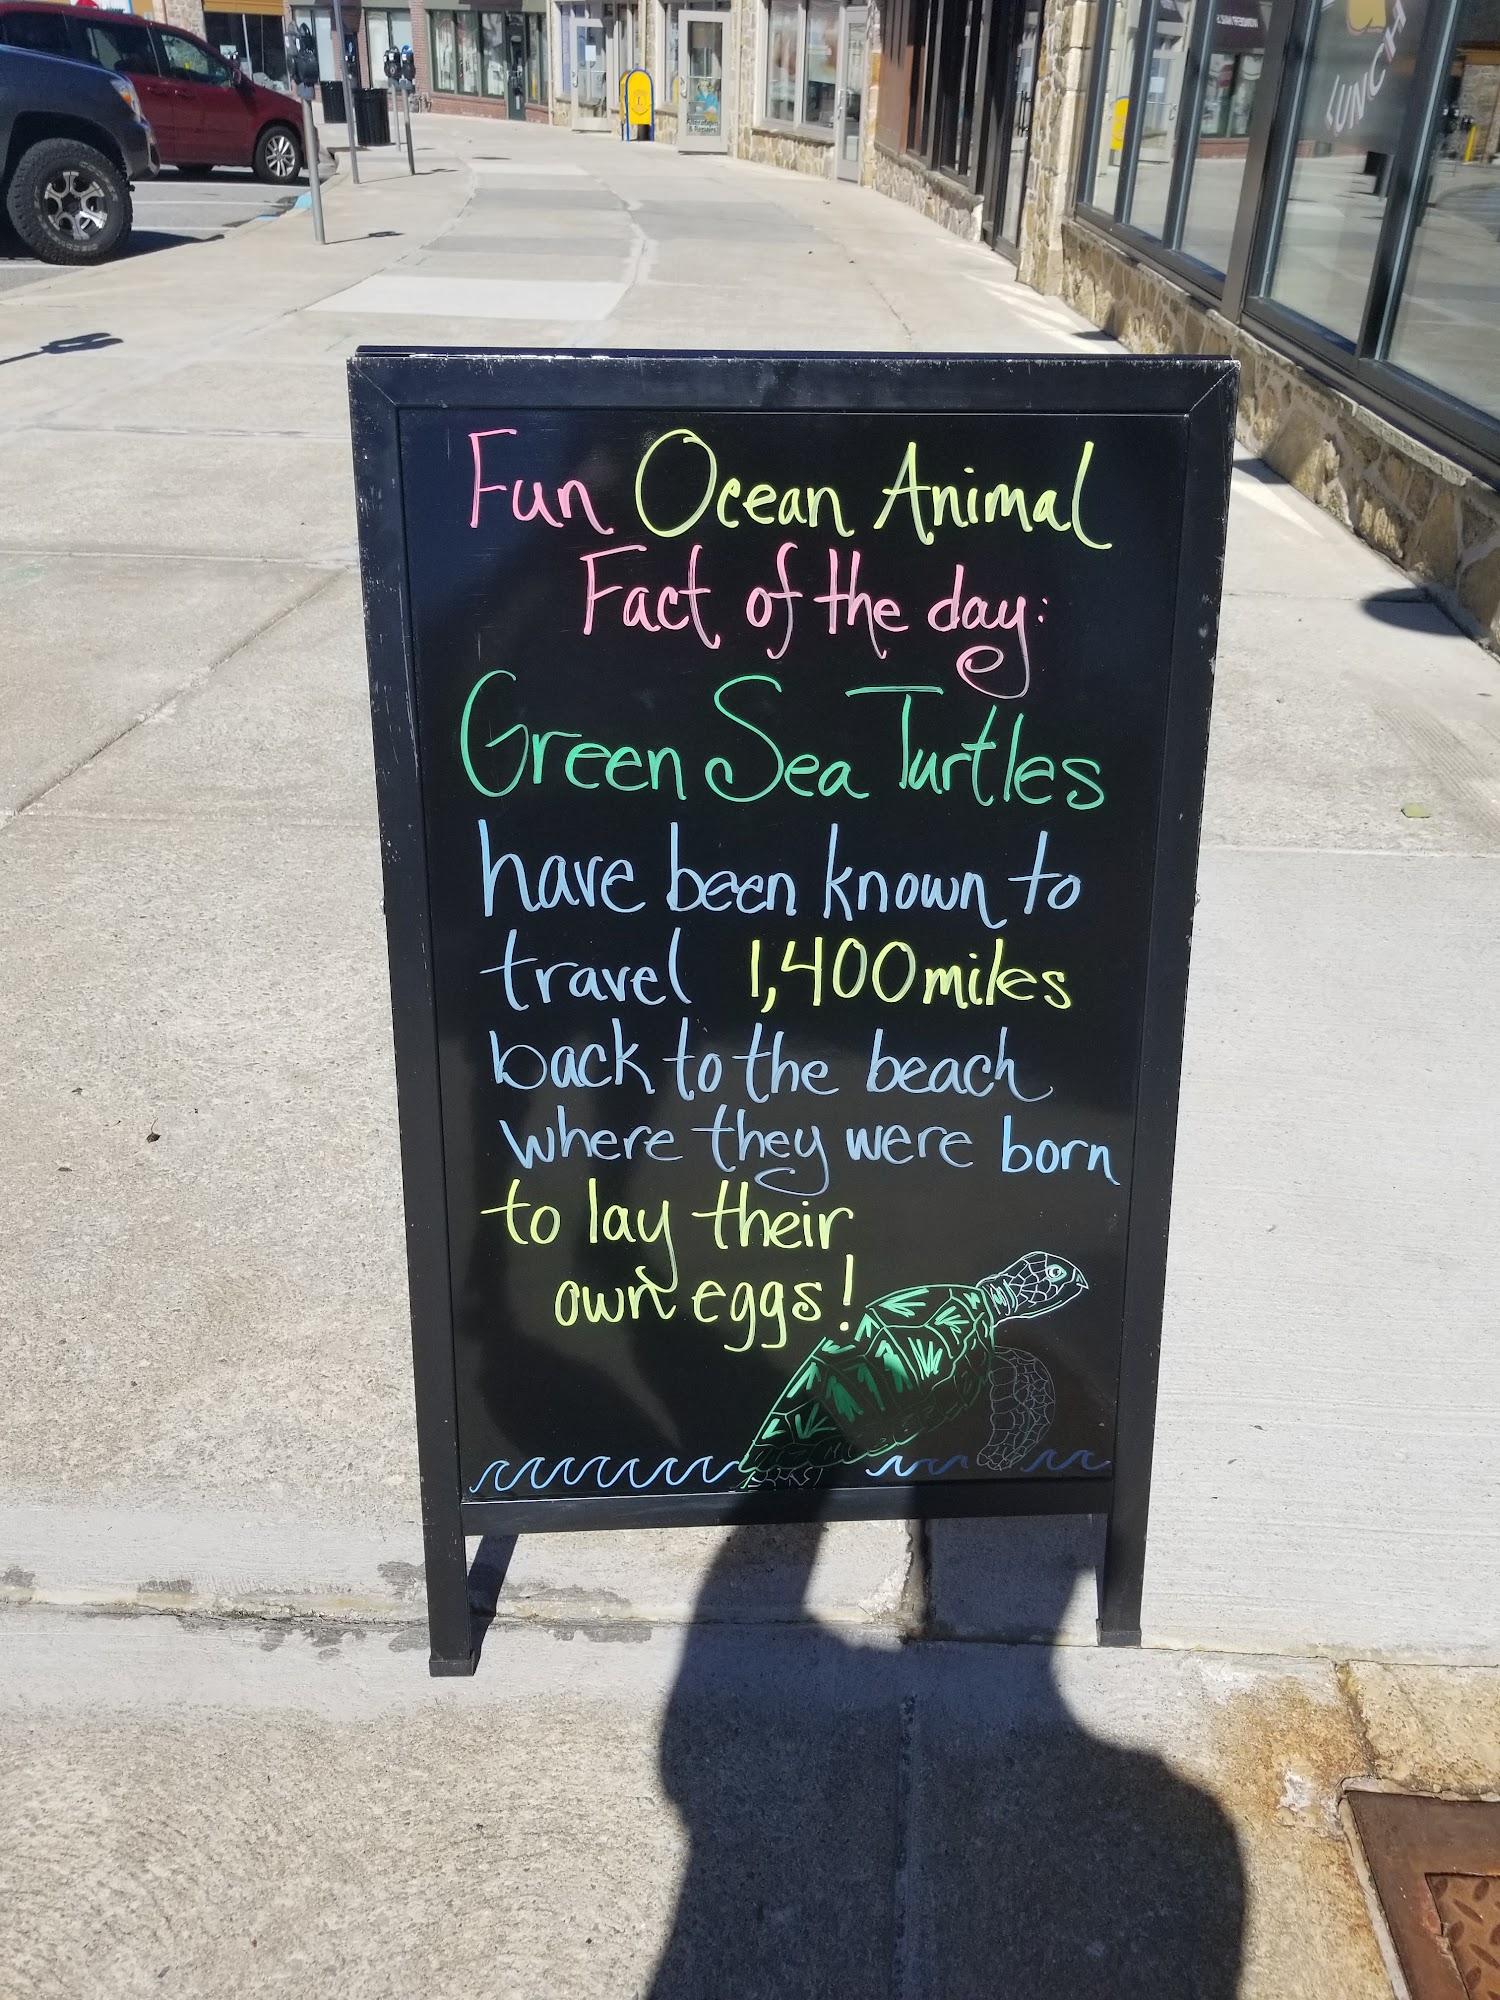 Fun Ocean Animal
Fact of the day:
Green Sea Turtles
have been known to
travel 1,400 miles
back to the beach
where they were born
to lay their
own eggs!
LUNCH
& Repairs